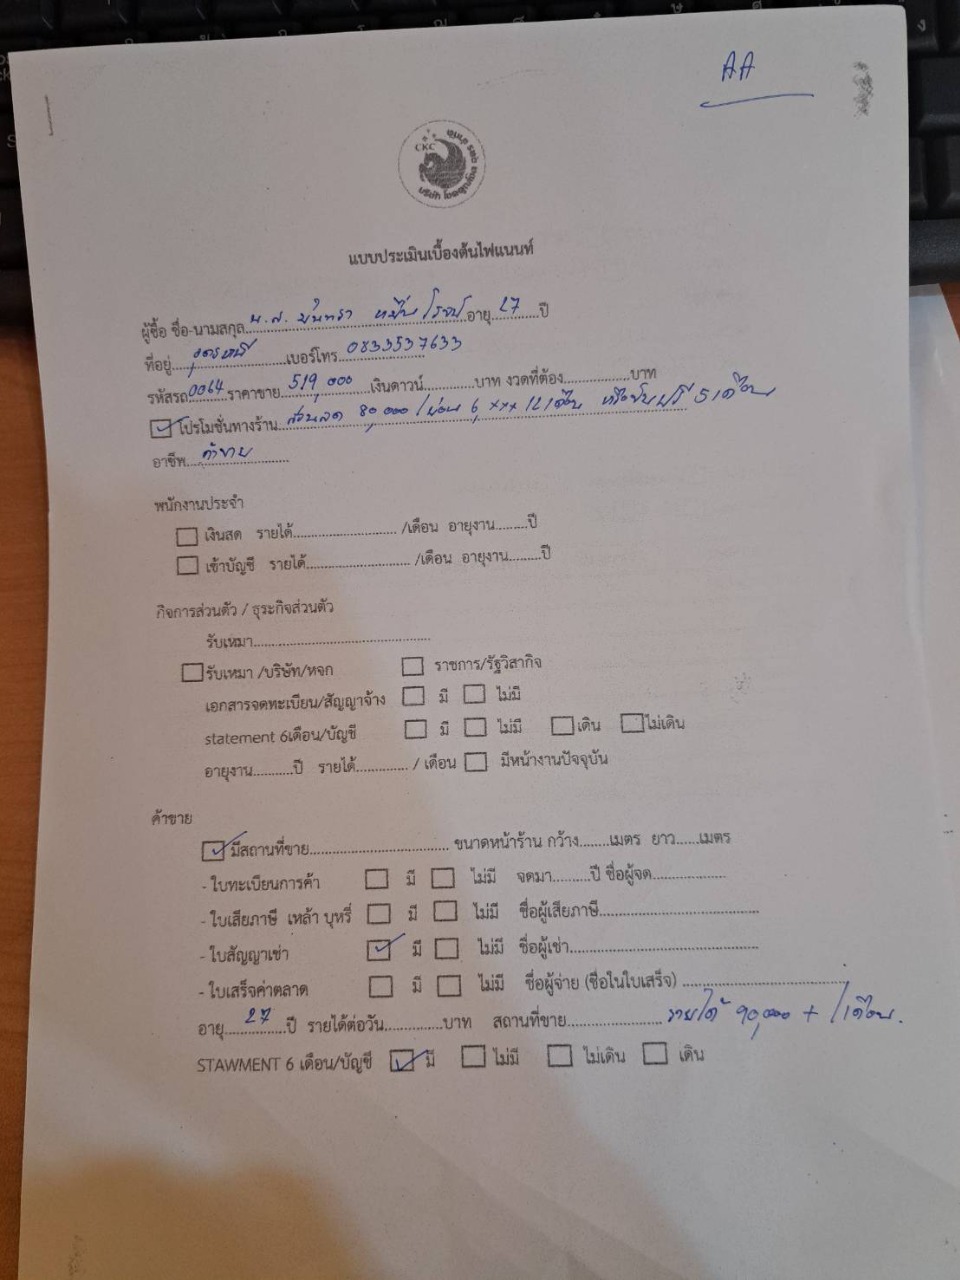 AA
CKC
แบบประเมินเบื้องต้นไฟแนนท์
ผู้ซื้อ ชื่อ-นามสกุล น.ส. อายุ 27 ปี
ที่อยู่ อุดรธานี เบอร์โทร 0833537633
รหัสรถ 0064 ราคาขาย 519,000 เงินดาวน์............บาท งวดที่ต้อง..............บาท
โปรโมชั่นทางร้าน ส่วนลด 80,000 / ผ่อน 6,xxx 12 เดือน หรือขับฟรี 5 เดือน
อาชีพ ค้าขาย
พนักงานประจำ
เงินสด รายได้........................ /เดือน อายุงาน........ปี
เข้าบัญชี รายได้........................ /เดือน อายุงาน........ปี
กิจการส่วนตัว / ธุระกิจส่วนตัว
รับเหมา..........................................
รับเหมา /บริษัท/หจก ราชการ/รัฐวิสากิจ
เอกสารจดทะเบียน/สัญญาจ้าง มี ไม่มี
statement 6เดือน/บัญชี มี ไม่มี เดิน ไม่เดิน
อายุงาน.........ปี รายได้............ / เดือน มีหน้างานปัจจุบัน
ค้าขาย
มีสถานที่ขาย................................ ขนาดหน้าร้าน กว้าง.......เมตร ยาว......เมตร
- ใบทะเบียนการค้า มี ไม่มี จดมา.........ปี ชื่อผู้จด.................
- ใบเสียภาษี เหล้า บุหรี่ มี ไม่มี ชื่อผู้เสียภาษี.....................................
- ใบสัญญาเช่า มี ไม่มี ชื่อผู้เช่า............................................
- ใบเสร็จค่าตลาด มี ไม่มี ชื่อผู้จ่าย (ชื่อในใบเสร็จ) ......................................
อายุ 27 ปี รายได้ต่อวัน..............บาท สถานที่ขาย...................... รายได้ 90,000 + / เดือน.
STAWMENT 6 เดือน/บัญชี มี ไม่มี ไม่เดิน เดิน